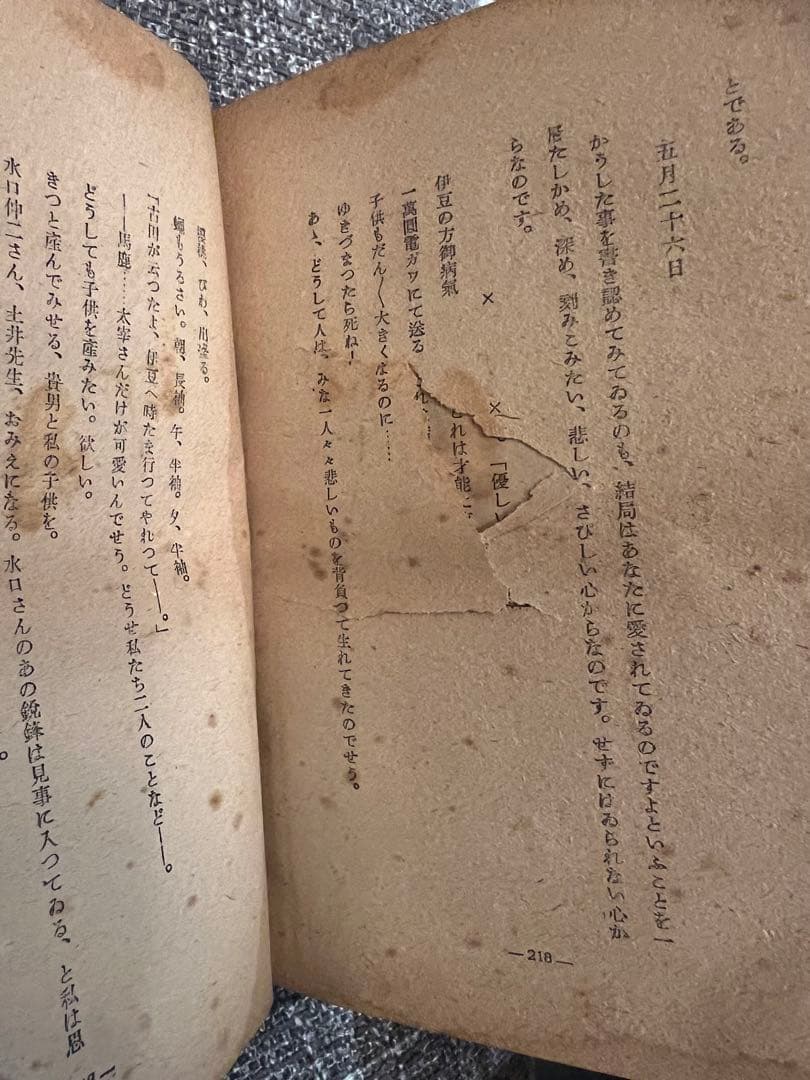 とである。
五月二十六日
かうした事を書き認めてみてゐるのも、結局はあなたに愛されてゐるのですよといふことを一
層たしかめ、深め、刻みこみたい、悲しい、さびしい心からなのです。せずにはゐられない心か
らなのです。
×
×
。「優し
これは才能
伊豆の方御病氣
一萬圓電ガワにて送る
子供もだん〱大きくなるのに……
ゆきづまつたら死ね!
あゝ、どうして人は、みな一人々々悲しいものを背負つて生れてきたのでせう。
櫻桃、びわ、出塗る。
蠅もうるさい。朝、長袖。午、半袖。夕、半袖。
「古田がぶつたよ、伊豆へ時たま行つてやれつて――。」
――馬鹿……太宰さんだけが可愛いんでせう。どうせ私たち二人のことなど――。
どうしても子供を産みたい。欲しい。
きつと産んでみせる、貴男と私の子供を。
水口仲二さん、土井先生、おみえになる。水口さんのあの鋭鋒は見事に入つてゐる、と私は思
。
―218―